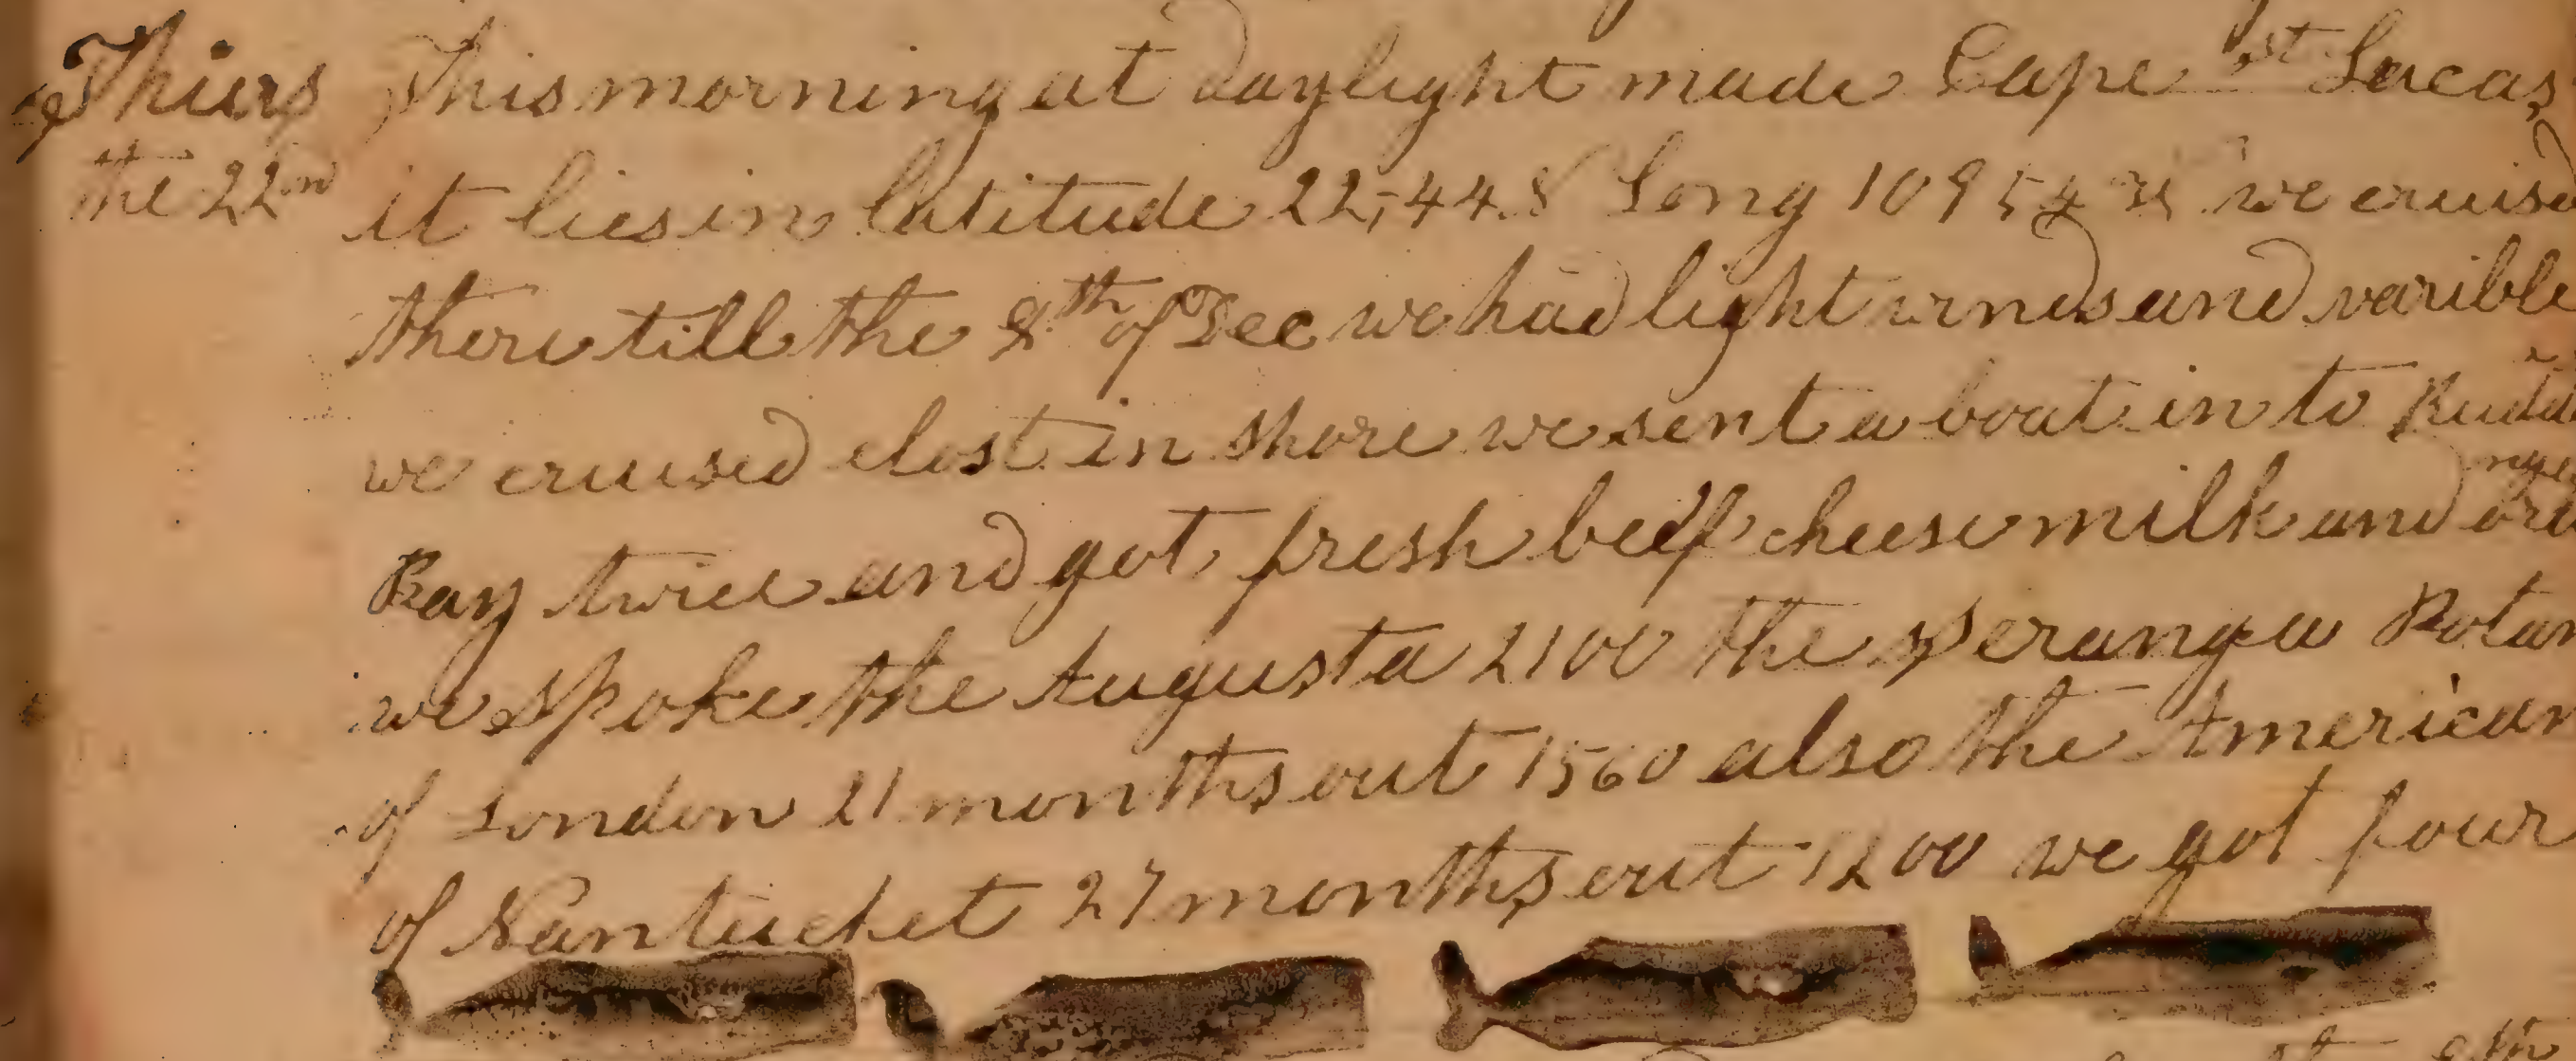 Thurs This morning at daylight made Cape St Lucas,
the 22nd it lies in latitude 22,44.N Long 109 54 W we cruised
there till the 8th of Dec we had light winds and varible
we cruised clost in shore we sent a boat in to
Bay twice and got, fresh beef cheese milk and oranges
we spoke the Augusta 2100 the Speranga
of London 21 months out 1560 also the American
of Nantucket 27 months out 1200 we got four